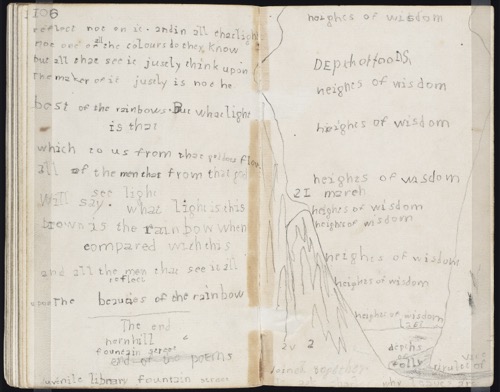 106
reflect not on it. and in all that light
not one of all the colours do they know
but all that see it justly think upon
the maker of it justly is not he
best of the rainbows. But what light
is that
which to us from that golden flows
all of the men that from that
see light
will say. what light is this
brown is the rainbow when
compared with this
and all the men that see it all
reflect
upon the beauties of the rainbow
The end
hernhill
fountain street
end of the poems
juvenile library fountain street
heighes of wisdom
DEPthoffooDS,
heights of wisdom
heights of wisdom
heights of wisdom
21 march
heights of wisdom
heights of wisdom
heights of wisdom
heights of wisdom
heights of wisdom
depths
folly
2v 2